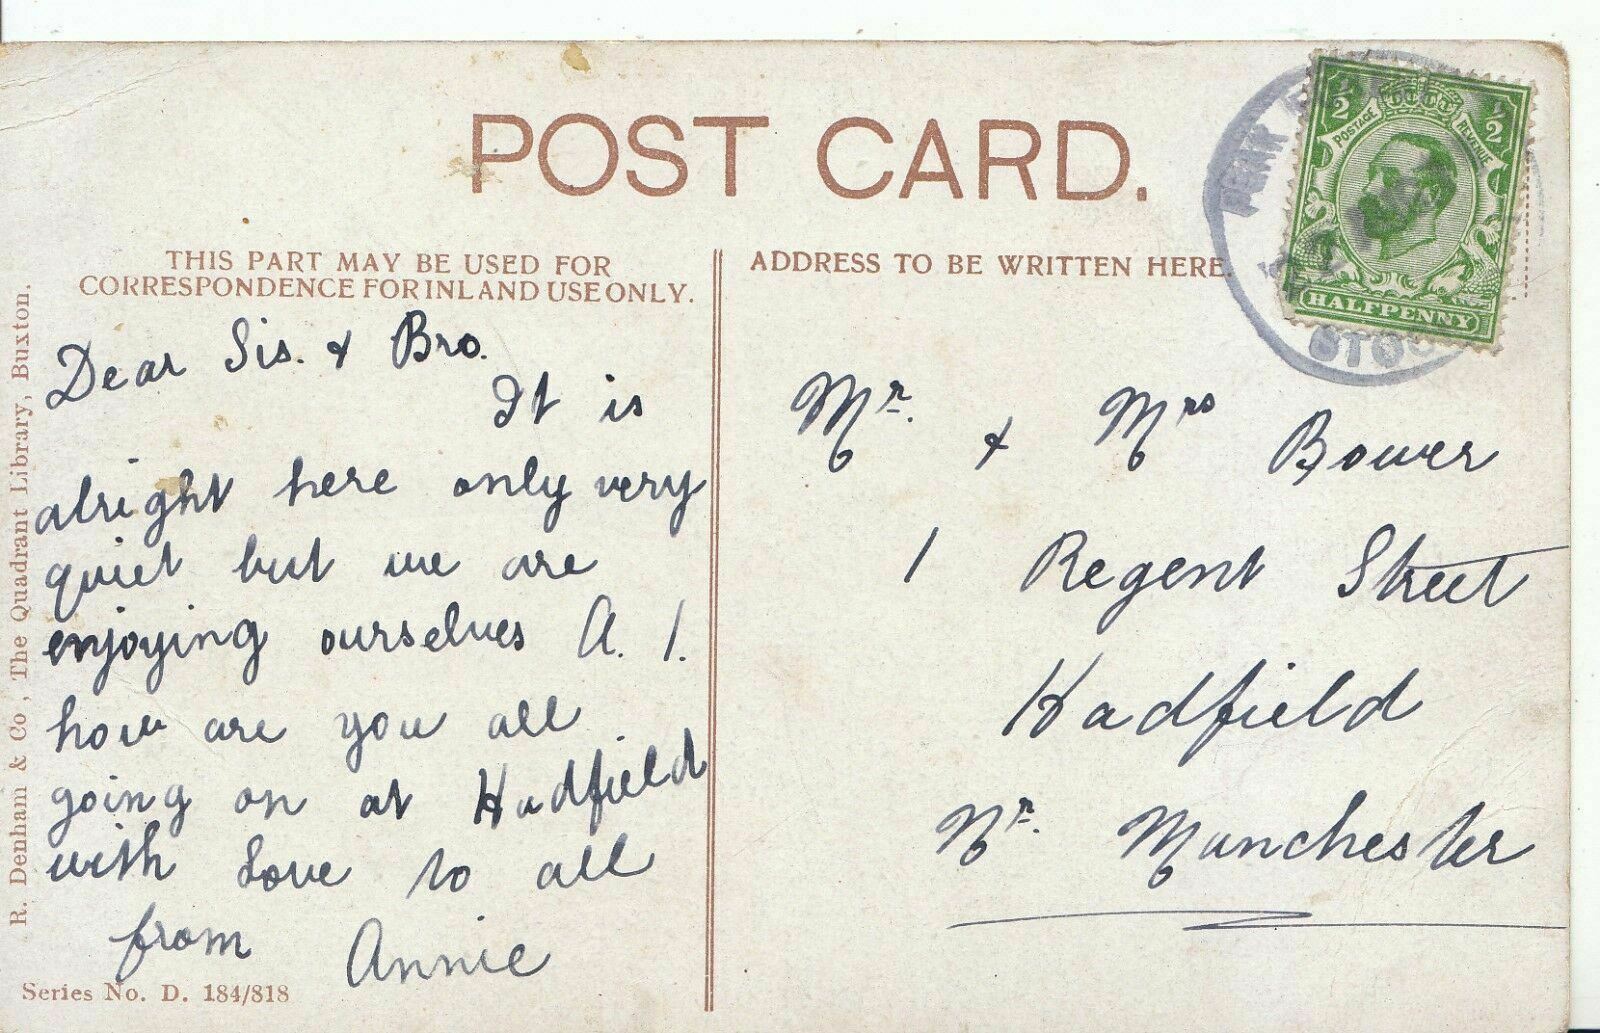 POST CARD.
THIS PART MAY BE USED FOR
CORRESPONDENCE FOR INLAND USE ONLY.
ADDRESS TO BE WRITTEN HERE.
Dear Sis. & Bro.
It is
alright here only very
quiet but we are
enjoying ourselves A. 1.
how are you all
going on at Hadfield
with Love to all
from Annie
Mr. & Mrs Bower
1 Regent Street
Hadfield
Nr. Manchester
½ ½
POSTAGE REVENUE
HALFPENNY
R. Denham & Co, The Quadrant Library, Buxton.
Series No. D. 184/818